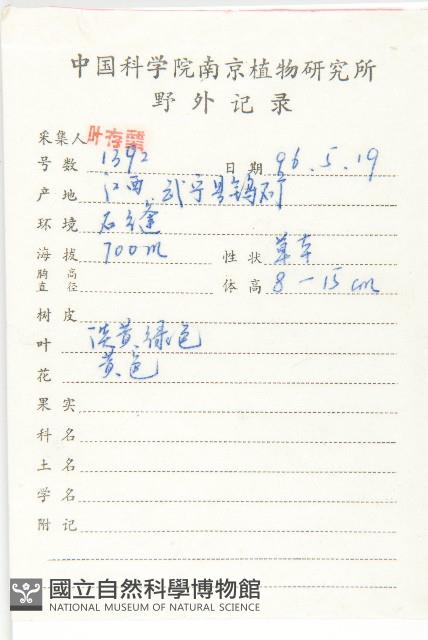 中国科学院南京植物研究所
野外记录
采集人 叶存粟
号数 1392 日期 96.5.19
产地 江西 武宁县钨矿
环境 石缝
海拔 700m 性状 草本
胸高直径 体高 8-15cm
树皮
叶 淡黄绿色
花 黄色
果实
科名
土名
学名
附记
國立自然科學博物館
NATIONAL MUSEUM OF NATURAL SCIENCE